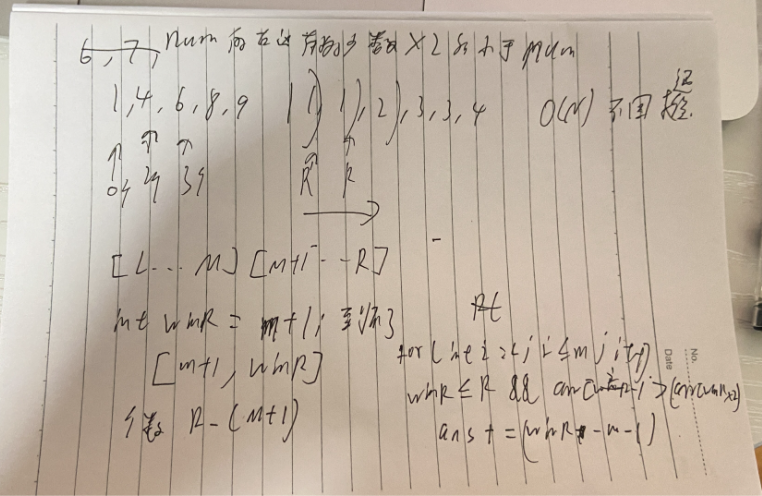 6, 7, num 向右边有多少数 ×2 后小于 num
1, 4, 6, 8, 9 | 1) 1), 2), 3, 3, 4 O(N) 不回
0个 2个 3个
R R
[L... M] [M+1...R]
int winR = m+1;
[m+1, winR]
个数 R-(M+1)
for(int i=L; i≤m; i++)
winR≤R && arr[i]>(arr[winR]×2)
ans += (winR-m-1)
No.
Date